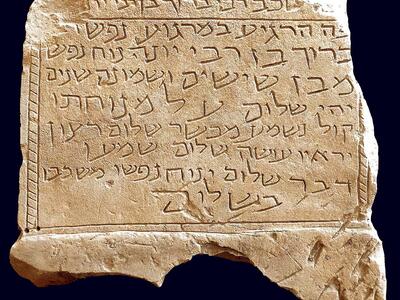 פה הרגיע במרגוע נפש ר
ברוך בן רבי יונה נוח נפש
מבן שישים ושמונה שנים
יהי שלום על מנוחתו
קול נשמע מבשר שלום רצון
יראיו עושה שלום שמען
דבר שלום ינוח נפשו משכבו
בשלום